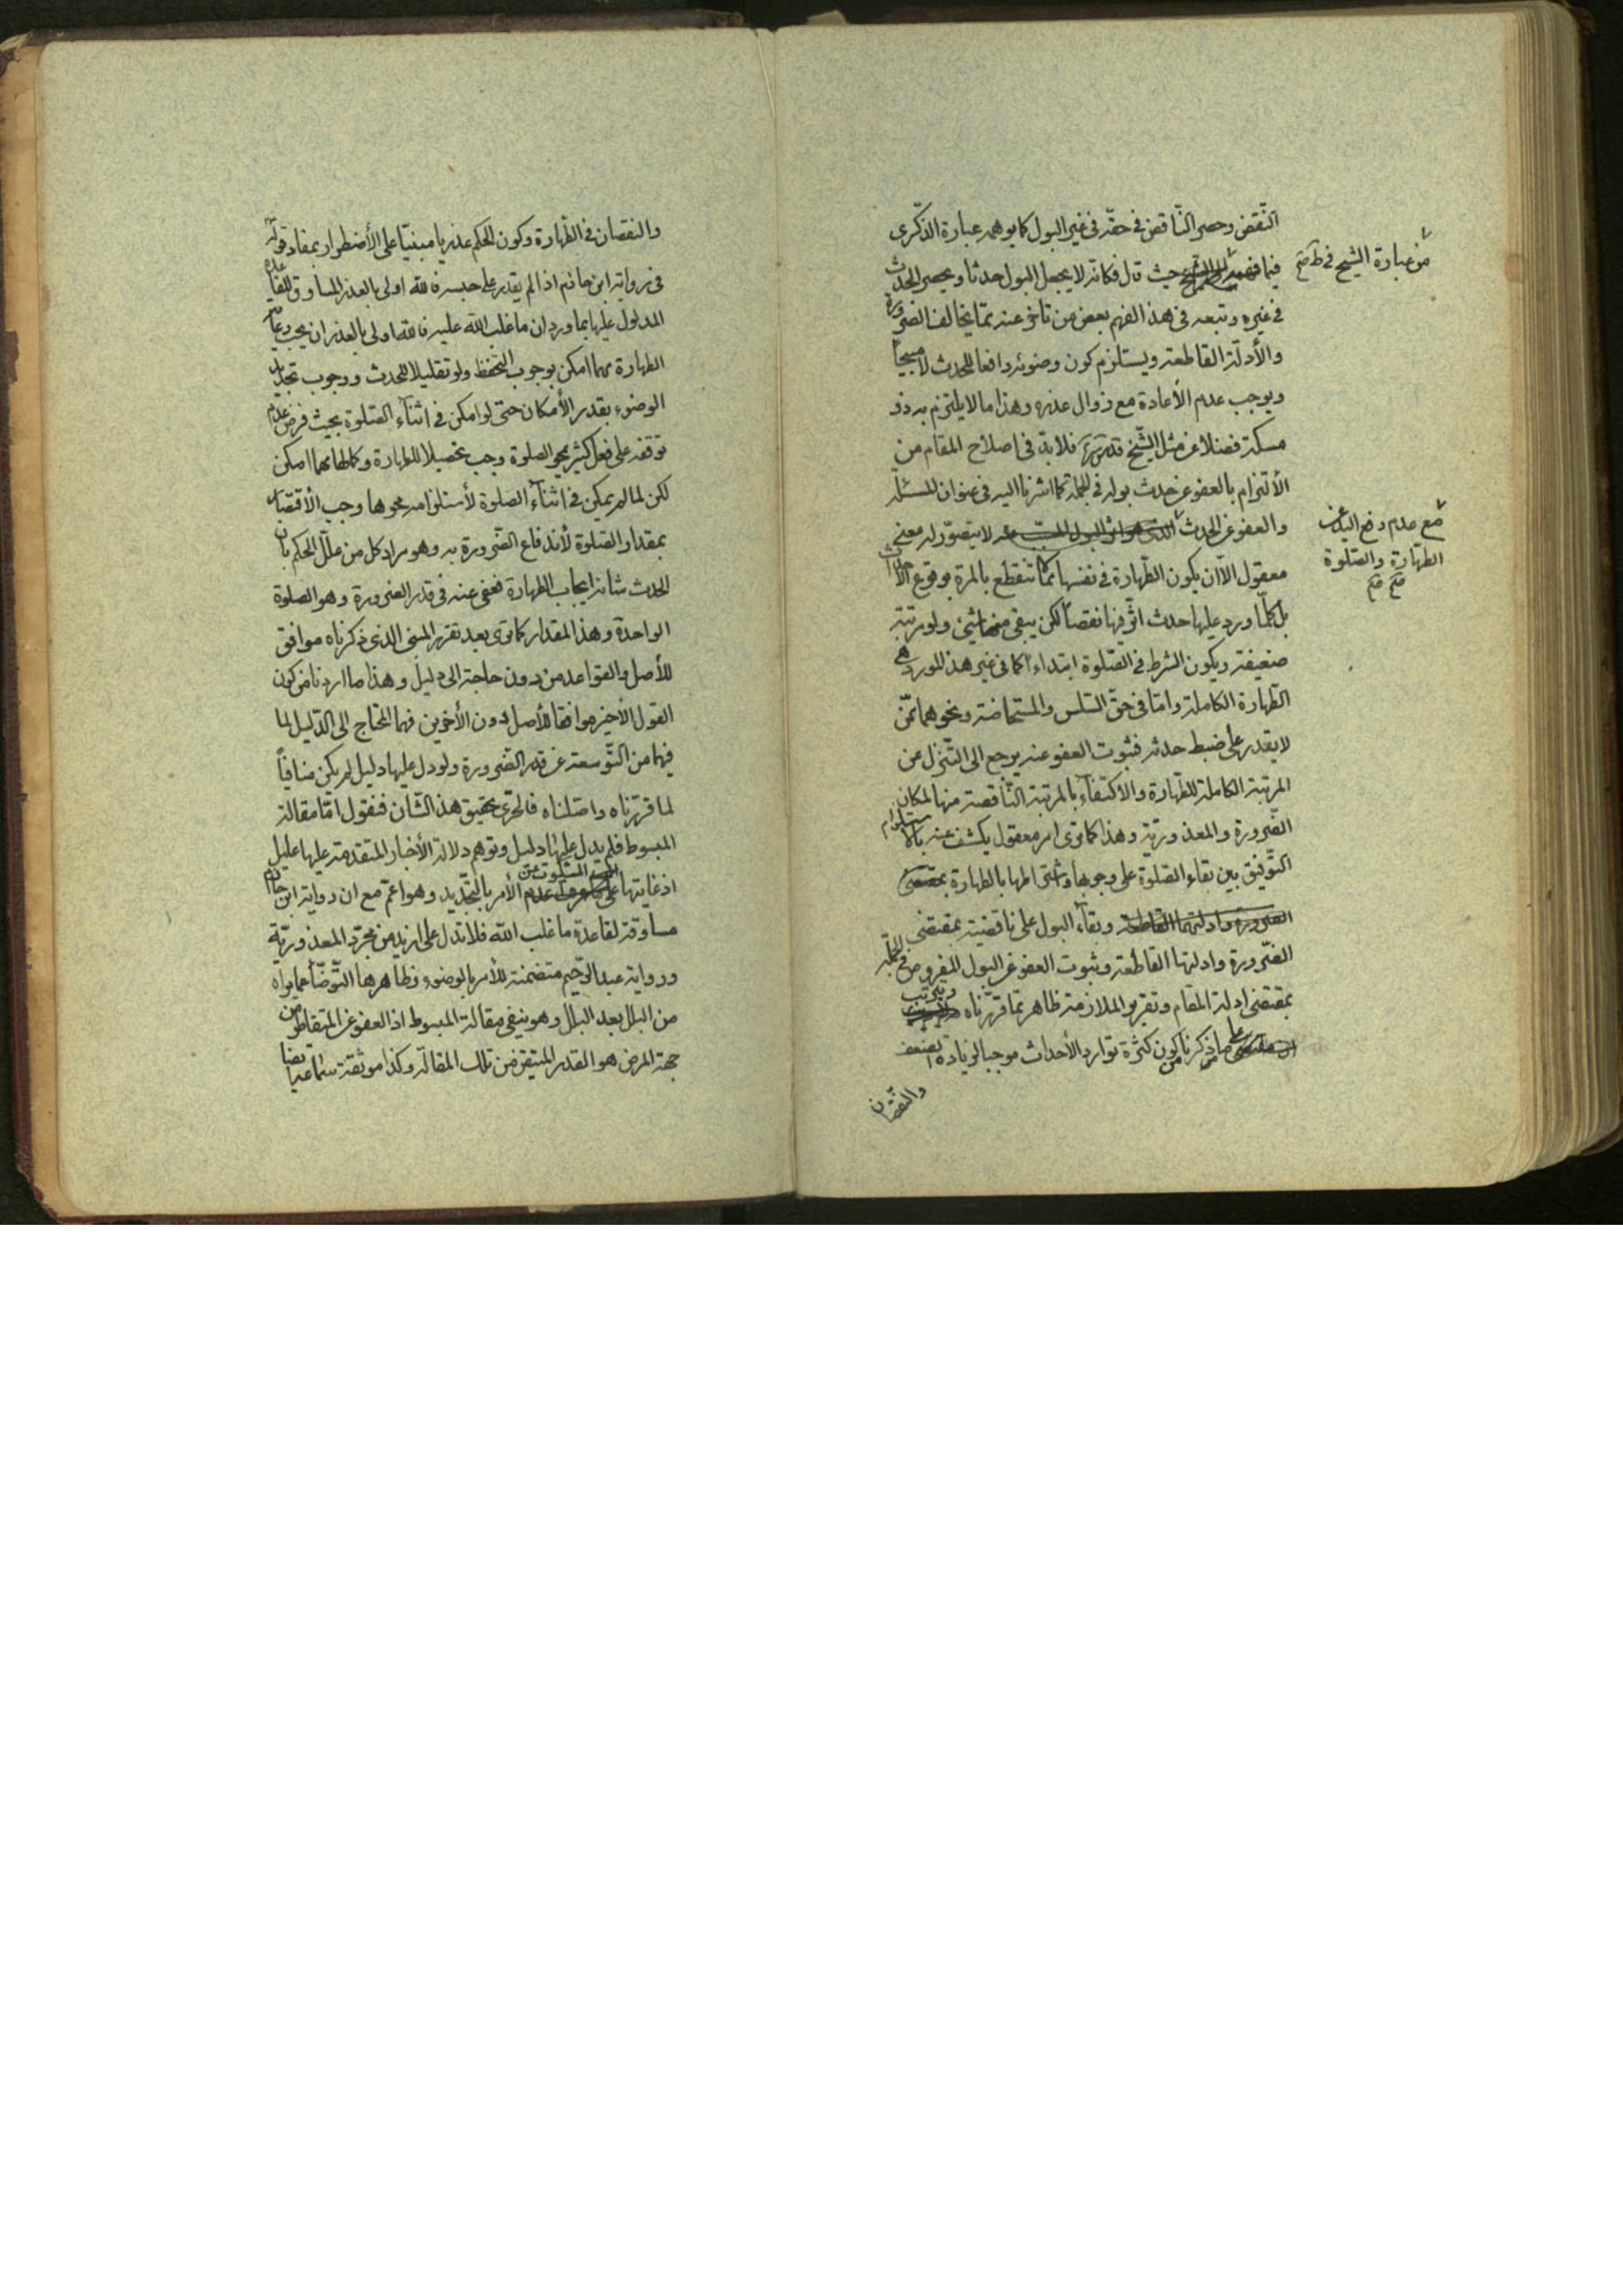 النّقض وحصر النّاقض في حقّه في غير البول كما يوهمه عبارة الذّكرى
فيما فهمه حيث قال فكانّه لا يجعل البول حدثا ويحصر الحدث
من عبارة الشيخ في ط صح
في غيره وتبعه في هذا الفهم بعض من تاخّر عنه ممّا يخالف الضرورة
والأدلّة القاطعة ويستلزم كون وضوئه رافعا للحدث لا مبيحاً
ويوجب عدم الأعادة مع زوال عذره وهذا ما لا يلتزم به ذو
مسكة فضلا عن مثل الشّيخ قدّس سرّه فلا بدّ في اصلاح المقام من
الألتزام بالعفو عن حدث بوله في الجملة كما اشرنا اليه في عنوان المسئلة
والعفو عن الحدث لا يتصوّر له معنى
مع عدم رفع اليد عن
الطهارة والصّلوة
صح صح
معقول الّا ان يكون الطّهارة في نفسها ممّا تنقطع بالمرّة بوقوع الأحداث
بل كلّما ورد عليها حدث اثّر فيها نقصاً لكن يبقى منها شئ ولو مرتبة
ضعيفة ويكون الشرط في الصّلوة ابتداء كما في غير هذا المورد هي
الطّهارة الكاملة وامّا في حقّ السّلس والمستحاضة ونحوهما ممّن
لا يقدر على ضبط حدثه فثبوت العفو عنه يرجع الى التّنزل عن
المرتبة الكاملة للطّهارة والأكتفاء بالمرتبة النّاقصة منها لمكان
الضّرورة والمعذوريّة وهذا كما ترى امر معقول يكشف عنه بالأستلزام
التّوفيق بين بقاء الصّلوة على وجوبها واشتراطها بالطهارة بمقتضى
الضرورة وادلتهما القاطعة وبقاء البول على ناقضيته بمقتضى
الضّرورة وادلتها القاطعة وثبوت العفو عن البول المفروض في الجملة
بمقتضى ادلة المقام وتقرير الملازمة ظاهر ممّا قرّرناه ويترتب
على ما ذكرنا من كون كثرة توارد الأحداث موجبا لزيادة الضعف
والنقصان
والنقصان في الطّهارة وكون الحكم عذريا مبنيّا على الأضطرار بمفاد قوله
في رواية ابن حازم اذا لم يقدر على حبسه فالله اولى بالعذر المساوق للقاعدة
المدلول عليها بما ورد ان ما غلب الله عليه فالله اولى بالعذر ان يجب رعاية
الطهارة مهما امكن بوجوب التحفّظ ولو تقليلا للحدث ووجوب تجديد
الوضوء بقدر الأمكان حتى لو امكن في اثناء الصّلوة بحيث فرض عدم
توقفه على فعل كثير يمحو الصلوة وجب تحصيلا للطهارة وكمالها مهما امكن
لكن لما لم يمكن في اثناء الصّلوة لأستلزامه محوها وجب الأقتصار
بمقدار الصّلوة لأندفاع الضّرورة به وهو مراد كل من علّل الحكم بان
الحدث شانه ايجاب الطهارة فعفى عنه في قدر الضرورة وهو الصلوة
الواحدة وهذا المقدار كما ترى بعد تقرير المبنى الذي ذكرناه موافق
للأصل والقواعد من دون حاجة الى دليل وهذا ما اردنا من كون
القول الأخير موافقا للأصل دون الأخرين فهما المحتاج الى الدّليل لما
فيهما من التّوسعة عن قدر الضّرورة ولو دل عليها دليل لم يكن منافياً
لما قرّرناه واصّلناه فالحرىّ تحقيق هذا الشّان فنقول امّا مقالة
المبسوط فلم يدل عليها دليل وتوهم دلالة الأخبار المتقدمة عليها عليل
اذ غايتها السكوت عن الأمر بالتّجديد وهو اعمّ مع ان رواية ابن حازم
مساوقة لقاعدة ما غلب الله فلا تدل على ازيد من مجرّد المعذوريّة
ورواية عبد الرّحيم متضمنة للأمر بالوضوء وظاهرها التّوضّأ عما يراه
من البلل بعد البلل وهو ينفي مقالة المبسوط اذ العفو عن المتقاطر من
جهة المرض هو القدر المتيقن من تلك المقالة وكذا موثقة سماعة ايضا